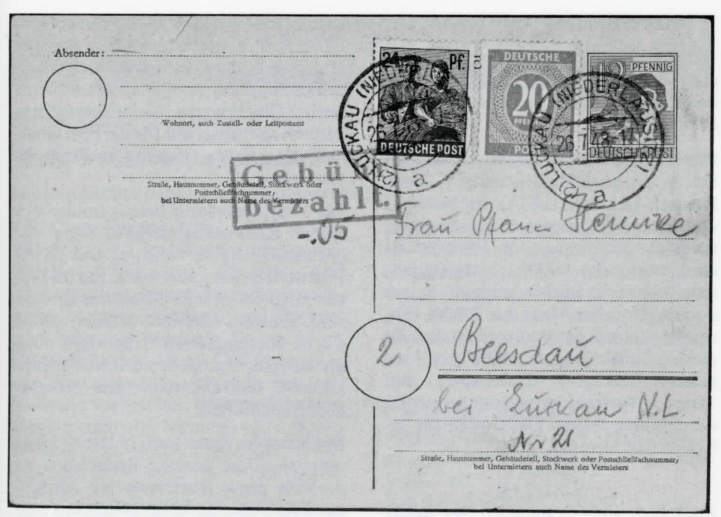 Absender:
Wohnort, auch Zustell- oder Leitpostamt
Straße, Hausnummer, Gebäudeteil, Stockwerk oder
Postschließfachnummer;
bei Untermietern auch Name des Vermieters
24 Pf.
DEUTSCHE POST
DEUTSCHE
20
PFENNIG
POST
12 PFENNIG
DEUTSCHE POST
(2) LUCKAU (NIEDERLAUSITZ)
26.7.48
a
(2) LUCKAU (NIEDERLAUSITZ)
26.7.48-17
a
Gebühr
bezahlt.
-.05
Frau
2
Beesdau
bei Luckau N.L.
Nr 21
Straße, Hausnummer, Gebäudeteil, Stockwerk oder Postschließfachnummer;
bei Untermietern auch Name des Vermieters